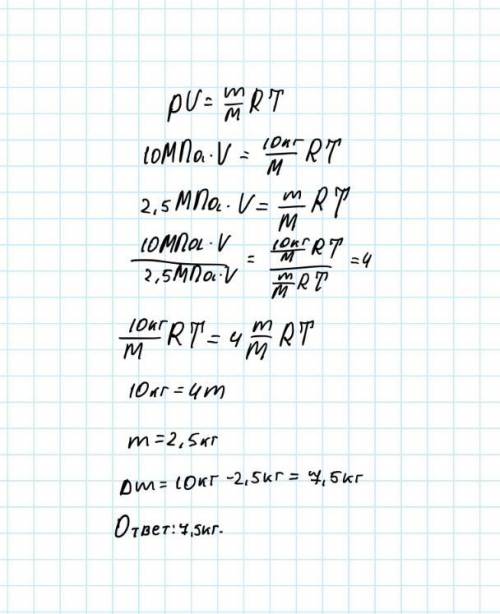 pV = m/M RT
10МПа · V = 10кг/M RT
2,5 МПа · V = m/M RT
10МПа · V / 2,5МПа · V = 10кг/M RT / m/M RT = 4
10кг/M RT = 4 m/M RT
10кг = 4m
m = 2,5кг
Dm = 10кг - 2,5кг = 7,5кг
Ответ: 7,5кг.